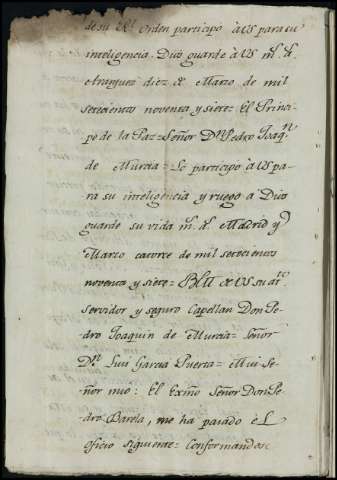 de su Rl. Orden participo à VS para su
inteligencia. Dios guarde à VS ms. as.
Aranjuez diez de Marzo de mil
setecientos noventa y siete = El Princi-
pe de la Paz = Señor Dn. Pedro Joaqn.
de Murcia = Lo participo à VS pa-
ra su inteligencia y ruego a Dios
guarde su vida ms. as. Madrid y
Marzo catorce de mil setecientos
noventa y siete = BLM de VS su ato.
servidor y seguro Capellan Don Pe-
dro Joaquin de Murcia = Señor
Dn. Luis Garcia Puerta = Mui Se-
ñor mio: El Exmo Señor Don Pe-
dro Barela, me ha pasado el
oficio siguiente = Conformandose